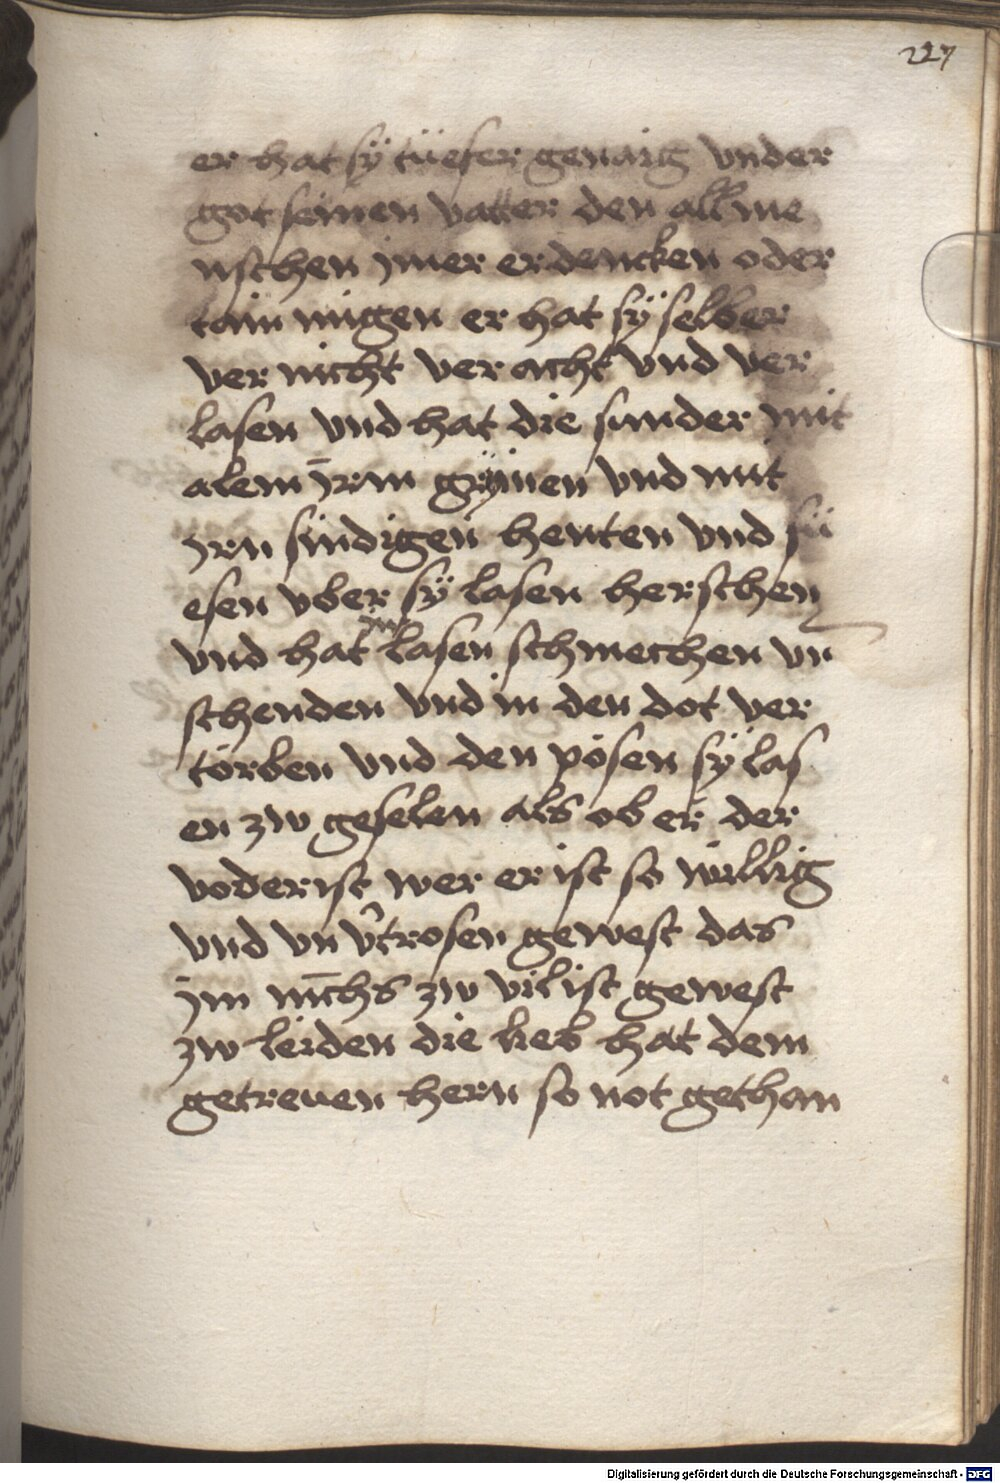 227
er hat sÿ tüefer genaig vnder
got seinen vatter den all me
nschen jmer erdencken oder
migen er hat sÿ selber
ver nicht ver acht vnd ver
lasen vnd hat die sunder mit
alem jrm grÿmen vnd mit
jrn sindigen henten vnd fü
esen vber sÿ lasen herschen
vnd hat lasen schmechen vn
schenden vnd in den dot ver
törben vnd den pösen sÿ las
en zw geselen als ob er der
voderist wer er ist so willig
vnd vn v̾trosen gewest das
jm nichs zw vil ist gewest
zw leiden die lieb hat dem
getreuen hern so not gethan
Digitalisierung gefördert durch die Deutsche Forschungsgemeinschaft - DFG